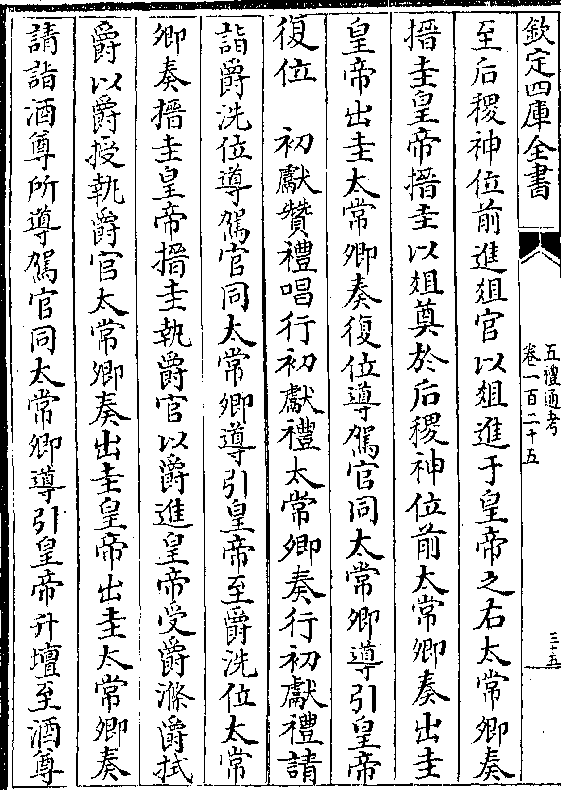 欽定四庫全書
五禮通考
卷一百二十五
三十五
至后稷神位前進俎官以俎進于皇帝之右太常卿奏
搢圭皇帝搢圭以俎奠於后稷神位前太常卿奏出圭
皇帝出圭太常卿奏復位導駕官同太常卿導引皇帝
復位　初獻贊禮唱行初獻禮太常卿奏行初獻禮請
詣爵洗位導駕官同太常卿導引皇帝至爵洗位太常
卿奏搢圭皇帝搢圭執爵官以爵進皇帝受爵滌爵拭
爵以爵授執爵官太常卿奏出圭皇帝出圭太常卿奏
請詣酒尊所導駕官同太常卿導引皇帝升壇至酒尊